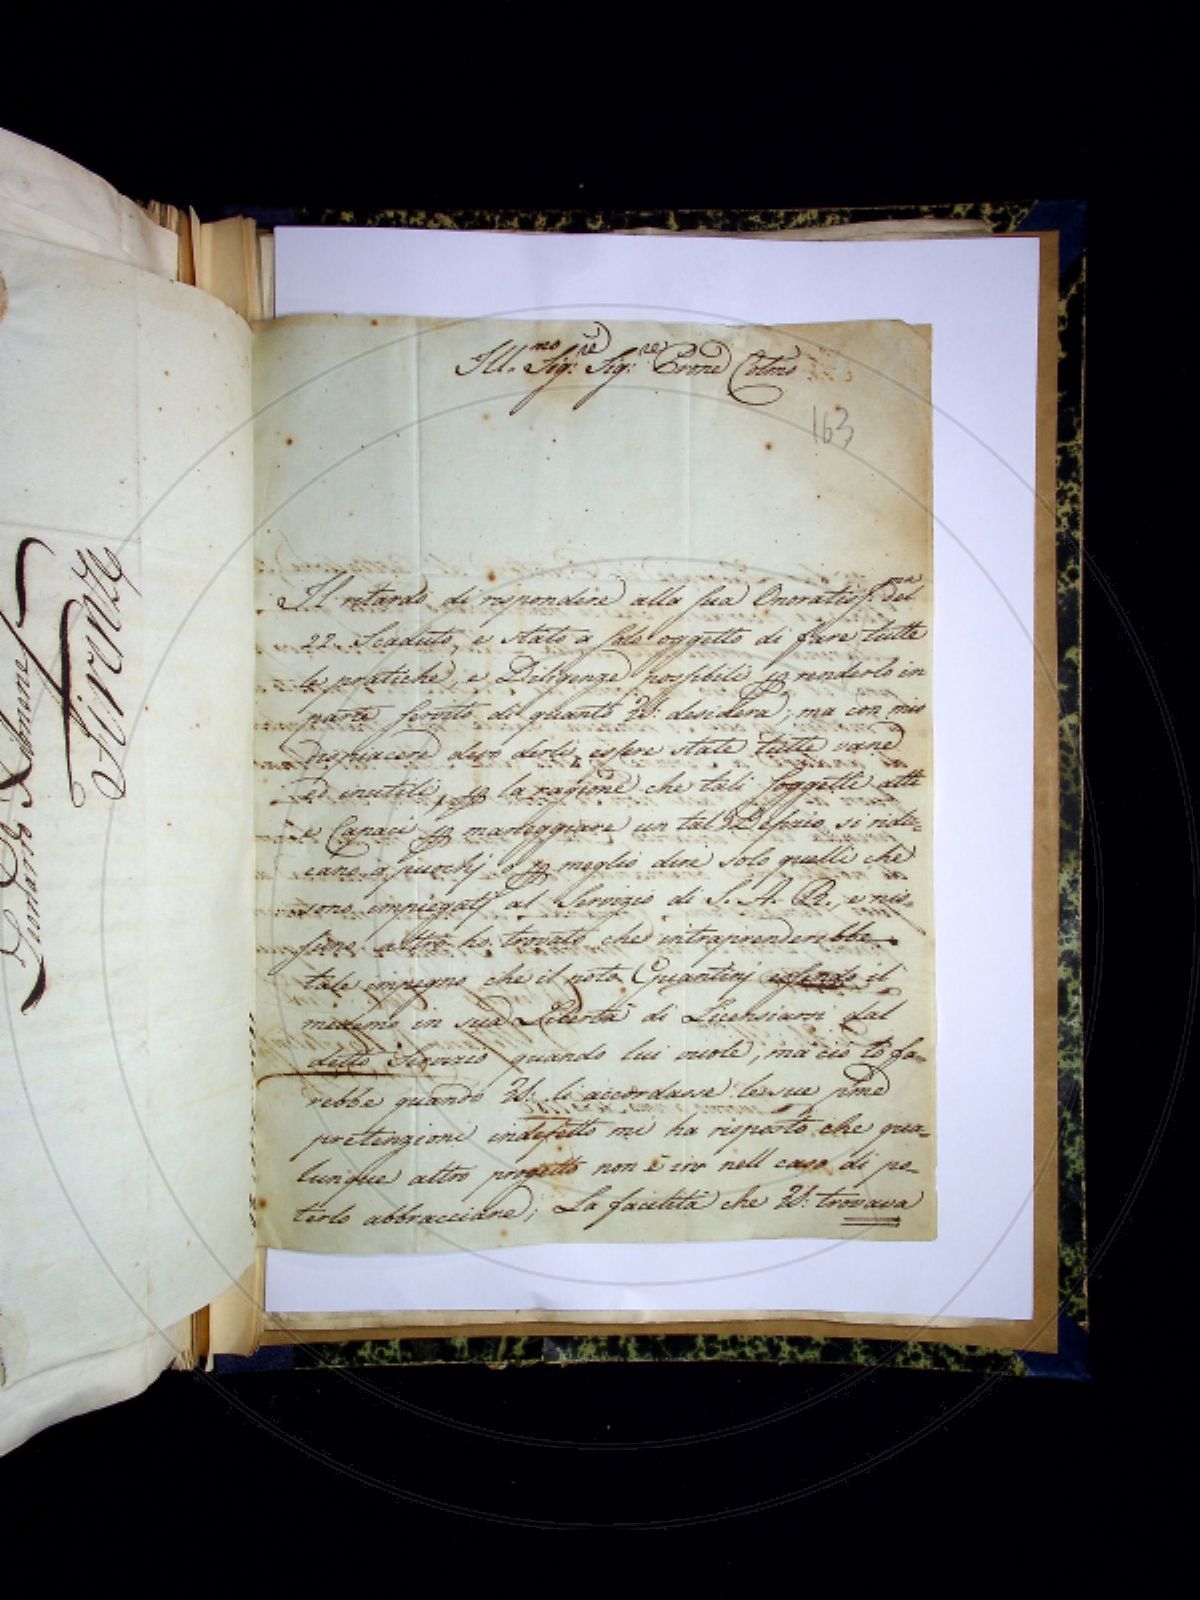 Ill.mo Sig.re Sig.re Prone Colmo
163
Il ritardo di rispondere alla sua Onoratiss.ma del
22. Scaduto, e stato a solo oggetto di fare tutte
le pratiche, e Diligenze possibili p renderlo in
parte servito di quanto V.S. desidera; ma con mio
dispiacere devo derli essere state tutte vane
ed inutili, p la ragione che tali soggetti atti
e Capaci p maneggiare un tal si ridu-
cano a pochj o p meglio dire solo quelli che
sono impiegatj al Servizio di S. A. R., e nis-
suno altro ho trovato che intraprenderebbe
tale impegno che il noto Guantinj essendo il
medemo in sua Libertà di Licenziarsi dal
detto Servizio quando lui vuole, ma ciò lo fa-
rebbe quando V.S. li accordasse le sue pme
pretenzioni indefetto mi ha risposto che qua-
lunque altro progetto non è in nell caso di po-
terlo abbracciare; La facilità che V.S. trovava
Firenze